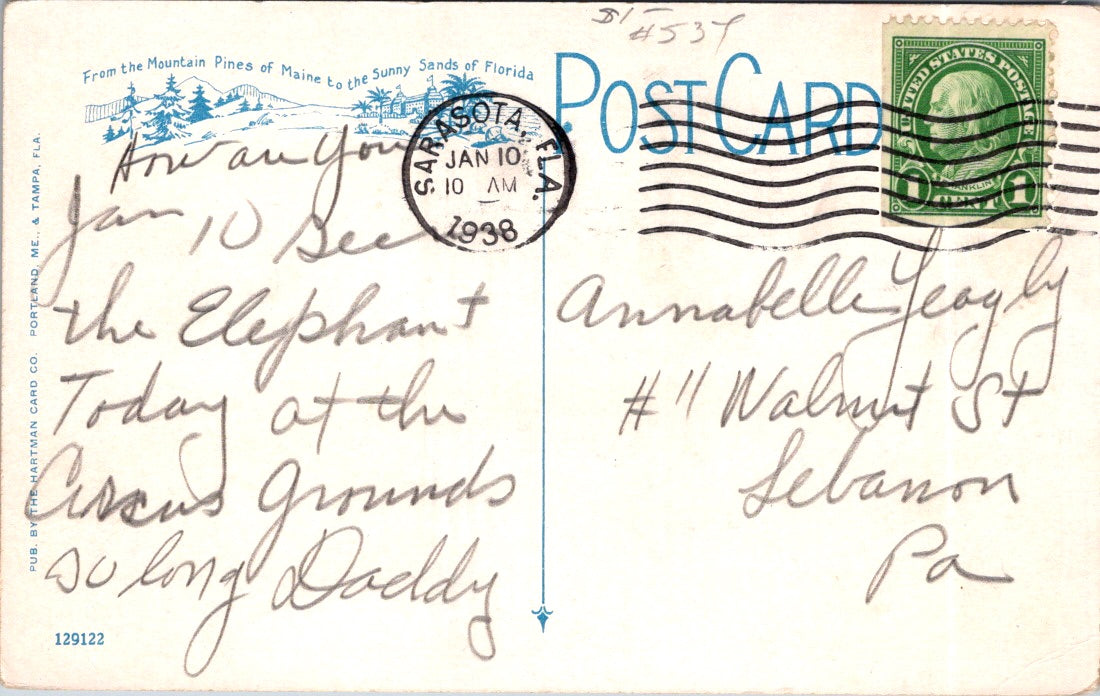 $1- #537
From the Mountain Pines of Maine to the Sunny Sands of Florida
POST CARD
SARASOTA, FLA.
JAN 10
10 AM
1938
UNITED STATES POSTAGE
FRANKLIN
1 CENT 1
How are You
Jan 10 See
the Elephant
Today at the
Circus Grounds
so long Daddy
Annabelle Yeagly
#11 Walnut St
Lebanon
Pa
PUB. BY THE HARTMAN CARD CO. PORTLAND, ME., & TAMPA, FLA.
129122